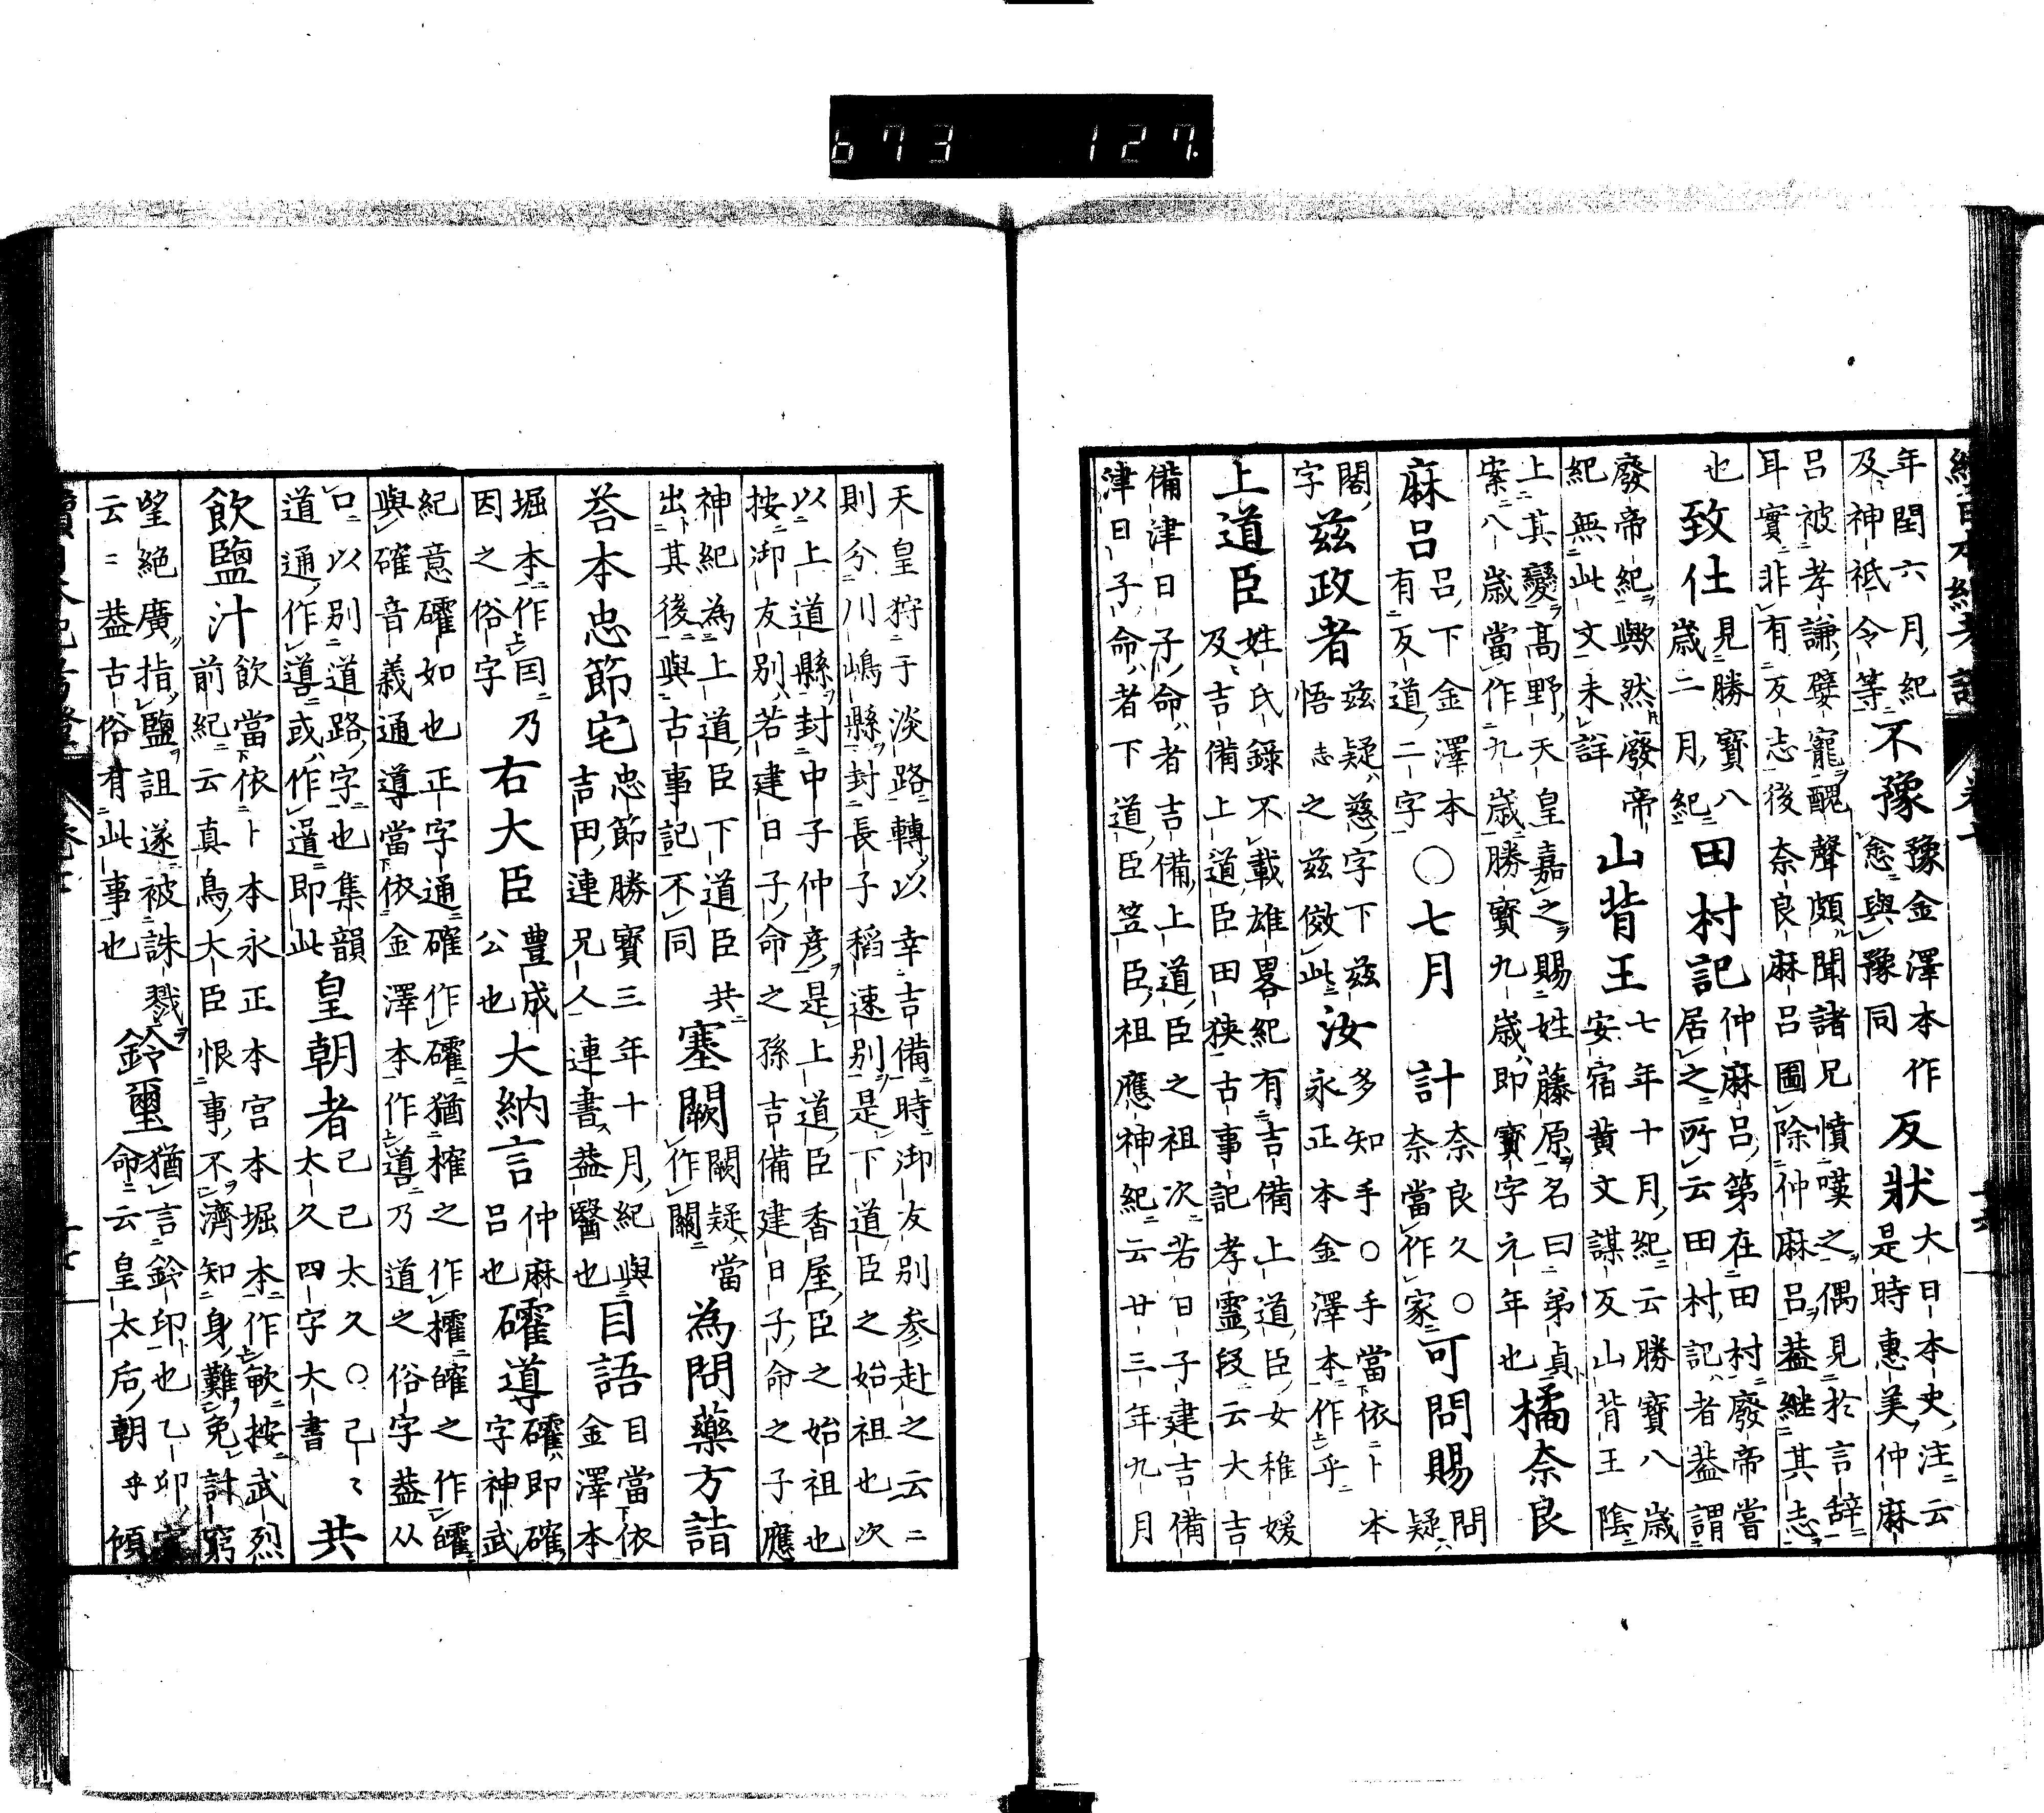 續日本紀考證
年閏六月紀
及神祗令等
不豫
豫金澤本作
悆與豫同
反狀
大日本史注云
是時惠美仲麻
呂被孝謙嬖寵醜聲頗聞諸兄憤嘆之偶見於言辞
耳實非有反志後奈良麻呂圖除仲麻呂葢継其志
也
致仕
見勝寶八
歳二月紀
田村記
仲麻呂第在田村廢帝嘗
居之所云田村記者葢謂
廢帝紀歟然廢帝
紀無此文未詳
山背王
七年十月紀云勝寶八歳
安宿黄文謀反山背王陰
上其變高野天皇嘉之賜姓藤原名曰弟貞
案八歳當作九歳勝寶九歳即寶字元年也
橘奈良
麻呂
呂下金澤本
有反道二字
○七月
計
奈良久○
奈當作家
可問賜
問
疑
閣
字
茲政者
茲疑慈字下茲
悟志之茲倣此
汝
多知手○手當依卜本
永正本金澤本作乎
上道臣
姓氏錄不載雄畧紀有吉備上道臣女稚媛
及吉備上道臣田狭古事記孝靈段云大吉
備津日子命者吉備上道臣之祖次若日子建吉備
津日子命者下道臣笠臣祖應神紀云廿三年九月
天皇狩于淡路轉以幸吉備時御友別参赴之云々
則分川嶋縣封長子稻速別是下道臣之始祖也次
以上道縣封中子仲彦是上道臣香屋臣之始祖也
按御友別若建日子命之孫吉備建日子命之子應
神紀為上道臣下道臣共
出其後與古事記不同
塞闕
闕疑當
作關
為問藥方詰
荅本忠節宅
忠節勝寶三年十月紀與
吉田連兄人連書葢醫也
目語
目當依
金澤本
堀本作囙乃
因之俗字
右大臣
豊成
公也
大納言
仲麻
呂也
礭導
礭即確
字神武
紀意礭如也正字通確作礭猶榷之作㩁皠之作皬
與確音義通導當依金澤本作噵乃道之俗字葢从
口以別道路字也集韻
道通作導或作噵即此
皇朝者
己己太久○己々
太久四字大書
共
飲鹽汁
飲當依卜本永正本宮本堀本作歃按武烈
前紀云真鳥大臣恨事不濟知身難免計窮
望絶廣指鹽詛遂被誅戮
云々葢古俗有此事也
鈴璽
猶言鈴印也乙卯
命云皇太后朝乎傾